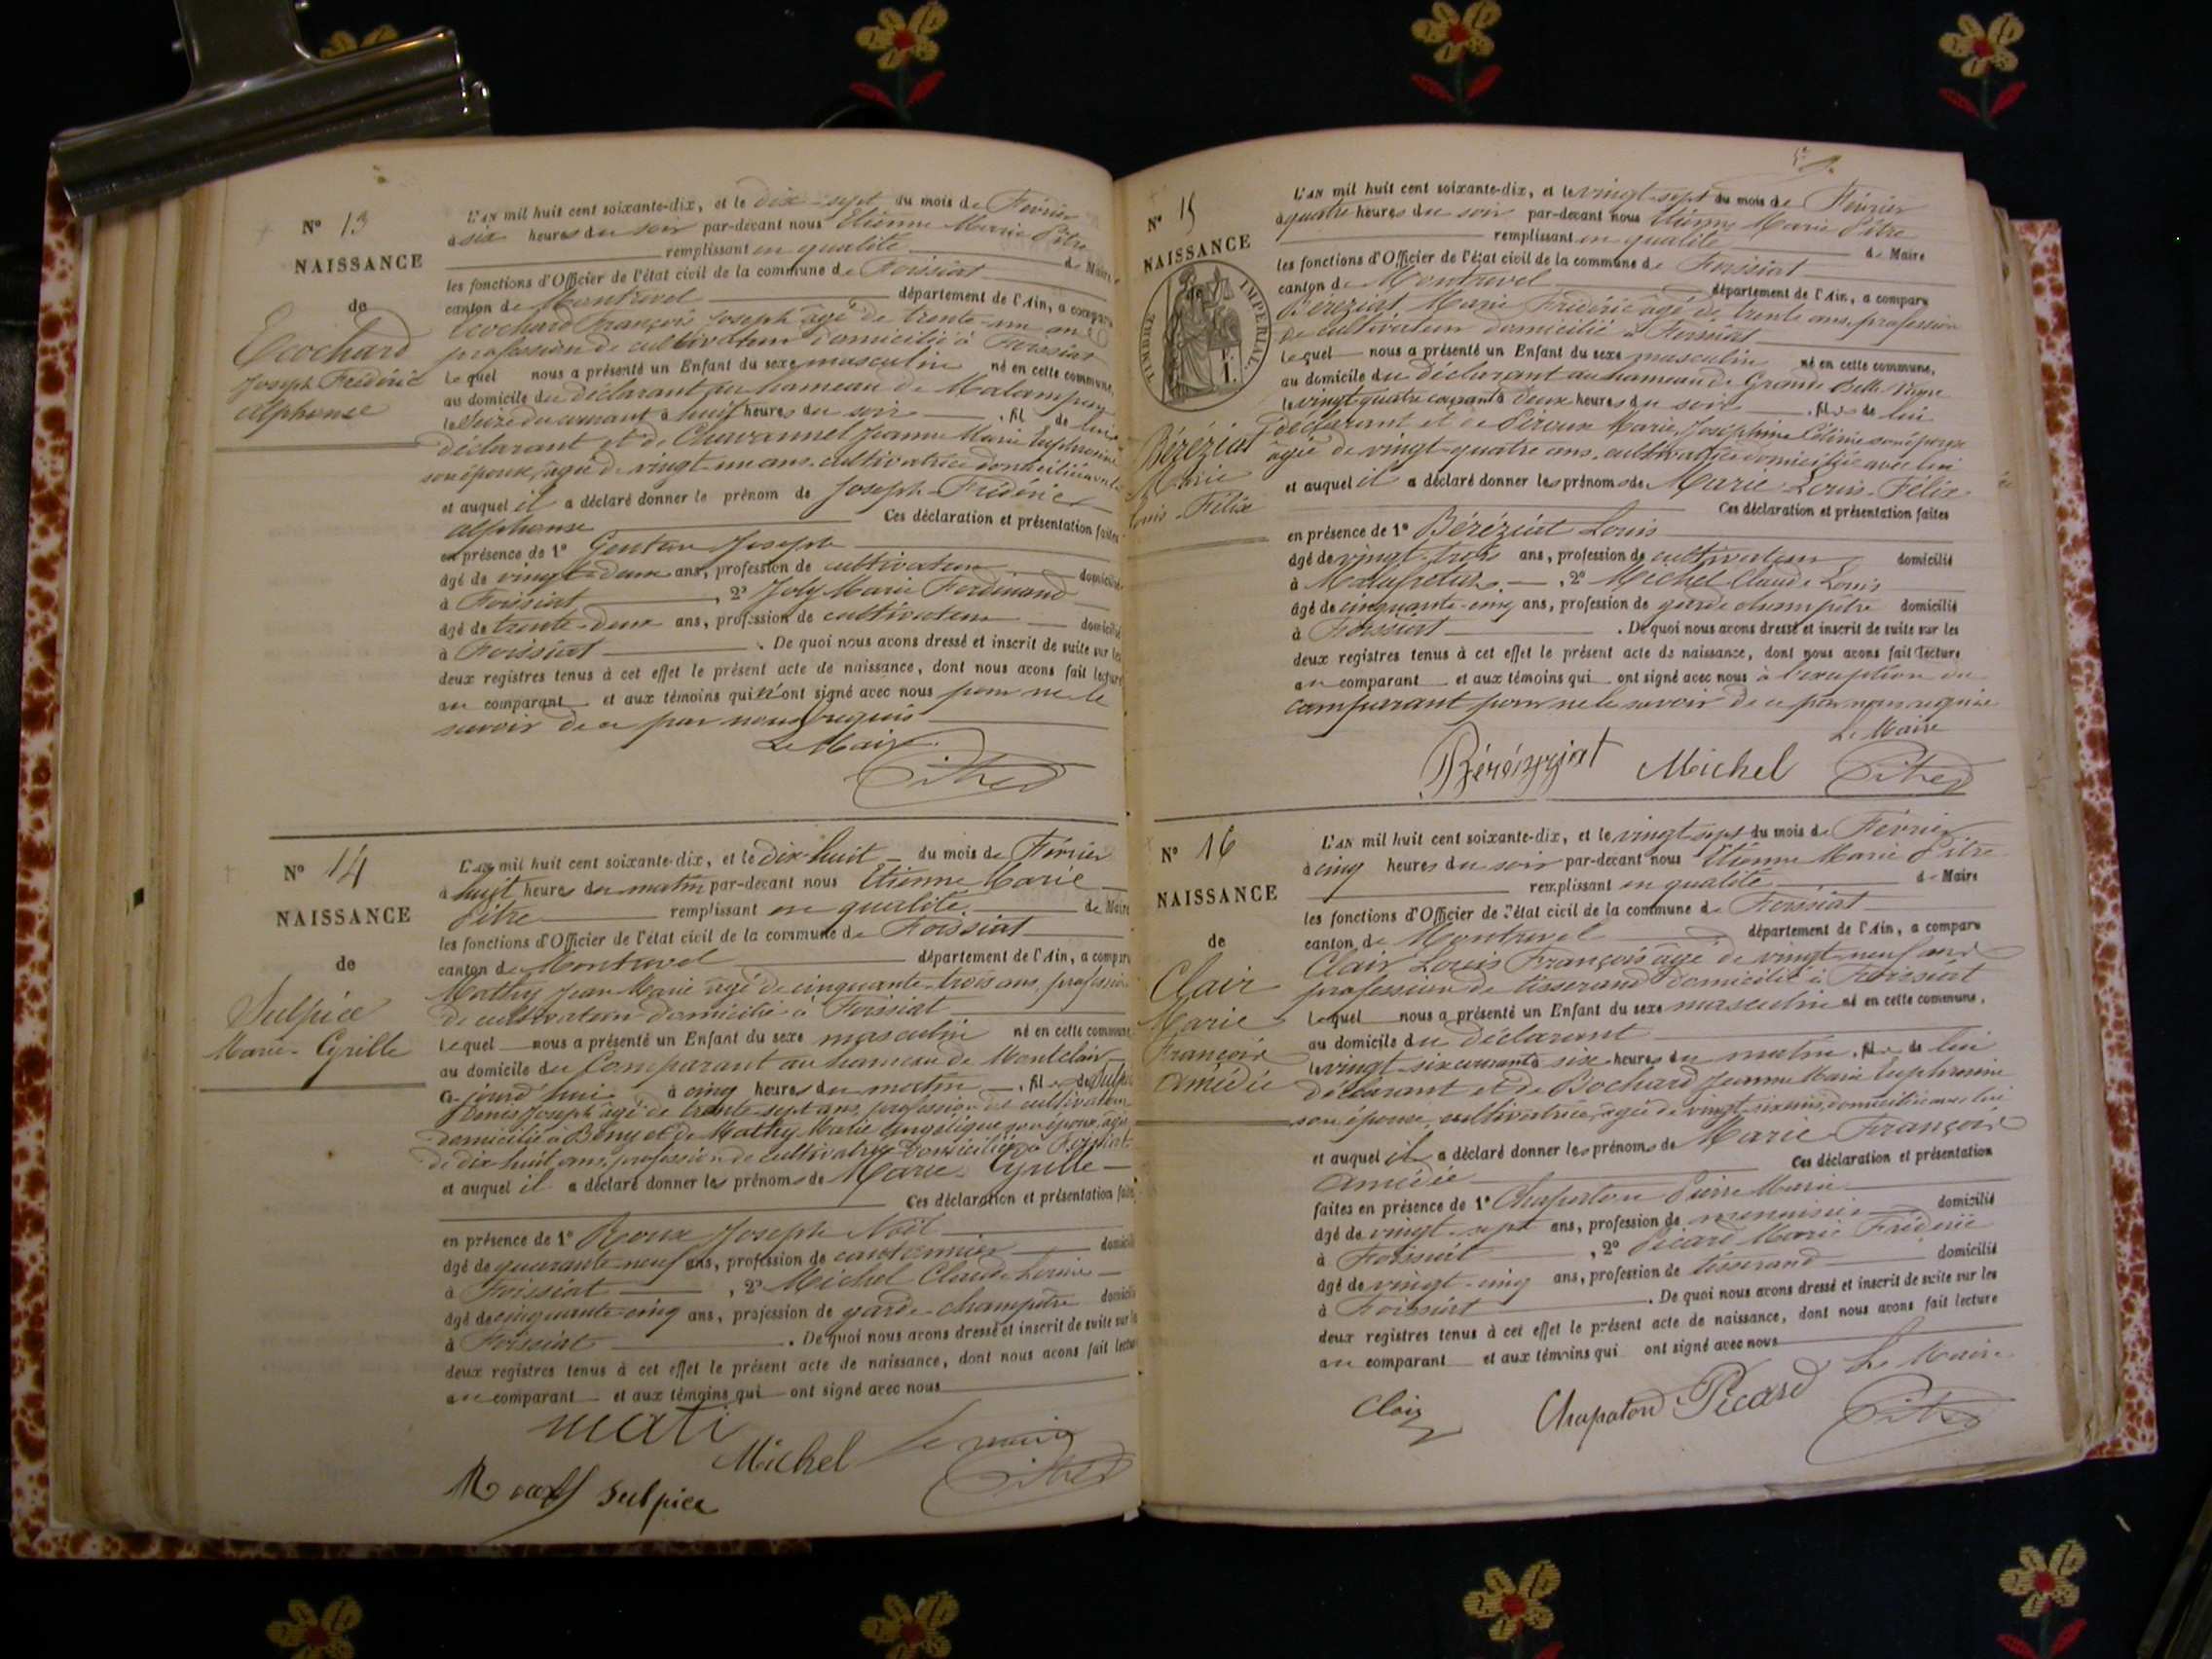 N° 13
NAISSANCE
de
Ecochard
Joseph Frédéric
Alphonse
L'AN mil huit cent soixante-dix, et le dix-sept du mois de Février
à six heures du soir par-devant nous Etienne Marie Pitre
remplissant en qualité de Maire
les fonctions d'Officier de l'état civil de la commune de Foissiat
canton de Montrevel département de l'Ain, a comparu
Ecochard François Joseph âgé de trente-un ans
profession de cultivateur domicilié à Foissiat
Lequel nous a présenté un Enfant du sexe masculin né en cette commune,
au domicile du déclarant au hameau de Malampuy
le seize du courant à huit heures du soir, fils de lui
déclarant et de Chavannel Jeanne Marie Euphrosine
son épouse, âgée de vingt-un ans cultivatrice domiciliée avec lui
et auquel il a déclaré donner le prénom de Joseph-Frédéric
Alphonse Ces déclaration et présentation faites
en présence de 1° Joseph
âgé de vingt-deux ans, profession de cultivateur domicilié
à Foissiat, 2° Joly Marie Ferdinand
âgé de trente-deux ans, profession de cultivateur domicilié
à Foissiat. De quoi nous avons dressé et inscrit de suite sur les
deux registres tenus à cet effet le présent acte de naissance, dont nous avons fait lecture
au comparant et aux témoins qui n'ont signé avec nous pour ne le
savoir de ce par nous requis
Le Maire
Pitre
N° 14
NAISSANCE
de
Sulpice
Marie-Cyrille
L'AN mil huit cent soixante-dix, et le dix-huit du mois de Février
à huit heures du matin par-devant nous Etienne Marie
Pitre remplissant en qualité de Maire
les fonctions d'Officier de l'état civil de la commune de Foissiat
canton de Montrevel département de l'Ain, a comparu
Mathy Jean Marie âgé de cinquante-trois ans, profession
de cultivateur domicilié à Foissiat
Lequel nous a présenté un Enfant du sexe masculin né en cette commune
au domicile du Comparant au hameau de Montclair
ce jourd'hui à cinq heures du matin, fils de Sulpice
Denis Joseph âgé de trente-sept ans, profession de cultivateur
domicilié à Bény et de Mathy Marie Angélique son épouse, âgée
de dix huit ans, profession de cultivatrice domiciliée à Foissiat
et auquel il a déclaré donner les prénoms de Marie-Cyrille
Ces déclaration et présentation faites
en présence de 1° Roux Joseph Noël
âgé de quarante neuf ans, profession de cantonnier domicilié
à Foissiat, 2° Michel Claude Louis
âgé de cinquante-cinq ans, profession de garde-champêtre domicilié
à Foissiat. De quoi nous avons dressé et inscrit de suite sur les
deux registres tenus à cet effet le présent acte de naissance, dont nous avons fait lecture
au comparant et aux témoins qui ont signé avec nous
mati
Michel Le maire
Roux Sulpice Pitre
N° 15
NAISSANCE
de
TIMBRE IMPERIAL
Béréziat
Marie
Louis-Félix
L'AN mil huit cent soixante-dix, et le vingt-sept du mois de Février
à quatre heures du soir par-devant nous Etienne Marie Pitre
remplissant en qualité de Maire
les fonctions d'Officier de l'état civil de la commune de Foissiat
canton de Montrevel département de l'Ain, a comparu
Béréziat Marie Frédéric âgé de trente ans, profession
de cultivateur domicilié à Foissiat
Lequel nous a présenté un Enfant du sexe masculin né en cette commune,
au domicile du déclarant au hameau de Grande Belle Vigne
le vingt-quatre courant à deux heures du soir, fils de lui
déclarant et de Marie Joséphine Céline son épouse
âgée de vingt-quatre ans, cultivatrice domiciliée avec lui
et auquel il a déclaré donner les prénoms de Marie-Louis-Félix
Ces déclaration et présentation faites
en présence de 1° Béréziat Louis
âgé de vingt-trois ans, profession de cultivateur domicilié
à, 2° Michel Claude Louis
âgé de cinquante-cinq ans, profession de garde champêtre domicilié
à Foissiat. De quoi nous avons dressé et inscrit de suite sur les
deux registres tenus à cet effet le présent acte de naissance, dont nous avons fait lecture
au comparant et aux témoins qui ont signé avec nous à l'exception du
comparant pour ne le savoir de ce par nous requis
Le Maire
Michel Pitre
N° 16
NAISSANCE
de
Clair
Marie
François
Amédée
L'AN mil huit cent soixante-dix, et le vingt-sept du mois de Février
à cinq heures du soir par-devant nous Etienne Marie Pitre
remplissant en qualité de Maire
les fonctions d'Officier de l'état civil de la commune de Foissiat
canton de Montrevel département de l'Ain, a comparu
Clair Louis François âgé de vingt-neuf ans
profession de tisserand domicilié à Foissiat
Lequel nous a présenté un Enfant du sexe masculin né en cette commune,
au domicile du déclarant
le vingt-six courant à six heures du matin, fils de lui
déclarant et de Bochard Jeanne Marie Euphrosine
son épouse, cultivatrice, âgée de vingt-six ans, domiciliée avec lui
et auquel il a déclaré donner les prénoms de Marie-François
Amédée Ces déclaration et présentation
faites en présence de 1° Chapaton Pierre Marie
âgé de vingt-sept ans, profession de menuisier domicilié
à Foissiat, 2° Picard Marie Frédéric
âgé de vingt-cinq ans, profession de tisserand domicilié
à Foissiat. De quoi nous avons dressé et inscrit de suite sur les
deux registres tenus à cet effet le présent acte de naissance, dont nous avons fait lecture
au comparant et aux témoins qui ont signé avec nous
Le Maire
Clair Chapaton Picard Pitre